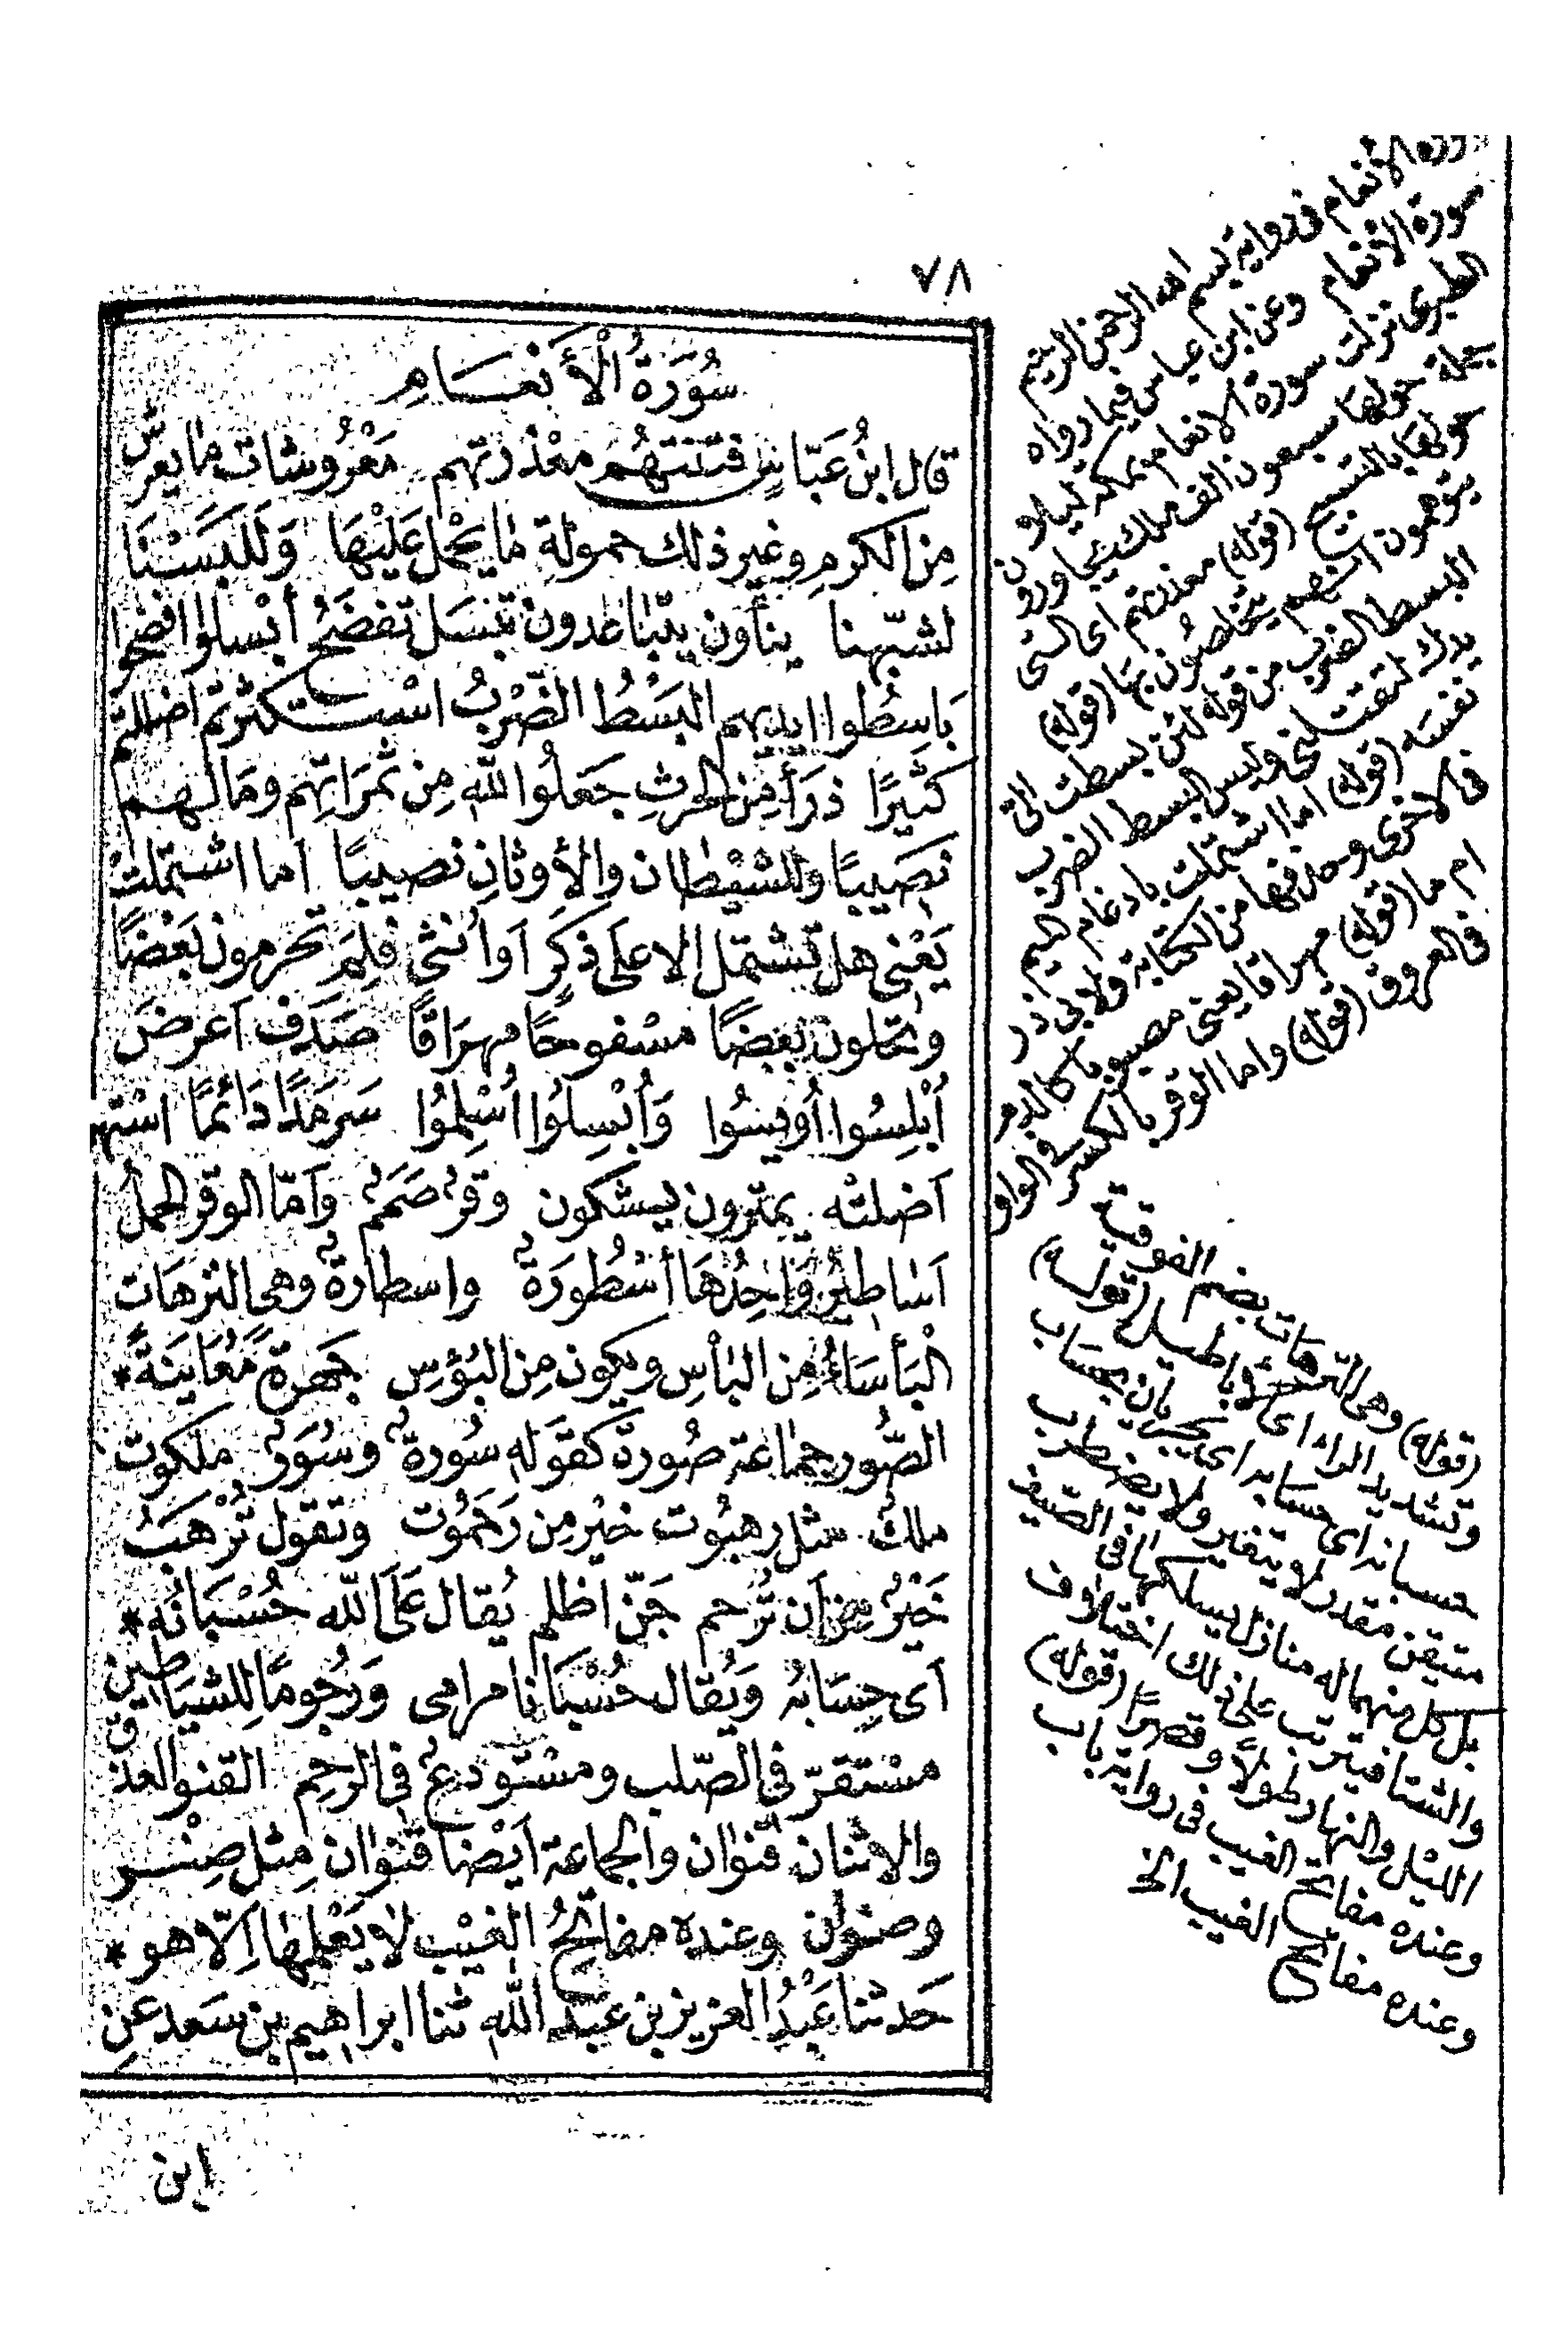 ٧٨
سُورَةُ الْأَنْعَامِ
قال ابنُ عَبّاسٍ فتنتهُم معْذرتهم مَعْرُوشات مَا يعرش
مِن الكرمِ وغير ذلك حمولة مَا يحْمل عَلَيْهَا وَلَلَبَسْنَا
لشبّهنا ينأون يتباعدون تبسَل تفضَحُ أبْسلوا افضحوا
بَاسِطُوا ايديهم البَسْطُ الضّرْبُ اسْتكثرتم اضللتم
كثيرًا ذرَأ مِن الحرثِ جَعَلُوا لله مِن ثمَرَاتِهم ومَالهم
نصَيبًا وللشيْطان والأوثانِ نصيبًا اما اشتملتْ
يَعْنِى هل تشتمل الا علَى ذكَرٍ اَو اُنثى فلِمَ تحرمون بَعْضًا
وتحلون بعضًا مسْفوحًا مهرَاقًا صَدَف اَعرضَ
أُبْلِسُوا أُويِسُوا وَأُبْسِلُوا أُسْلِمُوا سَرمَدًا دَائمًا اسْتهوته
اَضلتْه يمترون يشكون وقرٌ صَمَمٌ وَاَمّا الوقر الحمل
اَسَاطيرُ وَاحِدُهَا اُسْطُورَةٌ واسطارةٌ وهى الترهَات
الْبَأسَاءُ مِن البَأسِ ويكون مِن البُؤسِ جَهرةً مُعَاينَةً *
الصُّور جمَاعة صُورة كقوله سُورةٌ وسُوَرٌ ملكوت
ملك مثل رهبُوت خيْر مِن رَحَمُوت وتقول تُرْهَبُ
خَيْرٌ مِن اَن تُرْحم جَنّ اظلم يُقال عَلَى الله حُسْبَانُه *
اَى حِسَابُه وَيُقال حُسْبَانا مرامى وَرُجُومًا لِلشيَاطين
مسْتقرّ فى الصّلب ومسْتودعٌ فى الرحِم القنو العذق
والاثنان قنوَان والجماعة اَيْضا قنوَان مِثل صِنو
وصنوَان وعنده مفاتحُ الغيْب لا يَعْلمهَا اِلّا هو *
حَدثنا عَبْدُ العزيز بن عبْد الله ثنا ابراهيم بن سَعد عن
ابن
سورة الانعام فى رواية بسم الله الرحمن الرحيم
سورة الانعام وعن ابن عباس فيما رواه
الطبرى نزلت سورة الانعام بمكة ليلا
جملة حولها سبعون الف ملك يجاورون
حولها بالتسبيح (قوله) معذرتهم اى التى
يتوهمون انهم يتخلصُون بهَا (قوله)
البسط الضرب من قوله لئن بسطت الىّ
يدك لتقتلنى وليس البسط الضرب
نفسَه (قوله) اما اشتملت بادغام الميم
فى الاخرى وحذفها من الكتابة ولابى ذر
ام ما (قوله) مهراقا يعنى مصبوبا كالدم
فى العروق (قوله) واما الوقر بالكسر فى الواو
(قوله) وهى الترهات بضم الفوقية
وتشديد الراء اى اباطيل (قوله)
حسبانه اى حسابه اى يجريان بحسَاب
متيقن مقدر لا يتغير ولا يضطرب
بل كل منهما له منازل يسلكها فى الصّيف
والشتا فيترتب على ذلك اختلاف
الليْل والنهار طولاً وقصرًا (قوله)
وعنده مفاتح الغيب فى رواية باب
وعنده مفاتح الغيب الخ